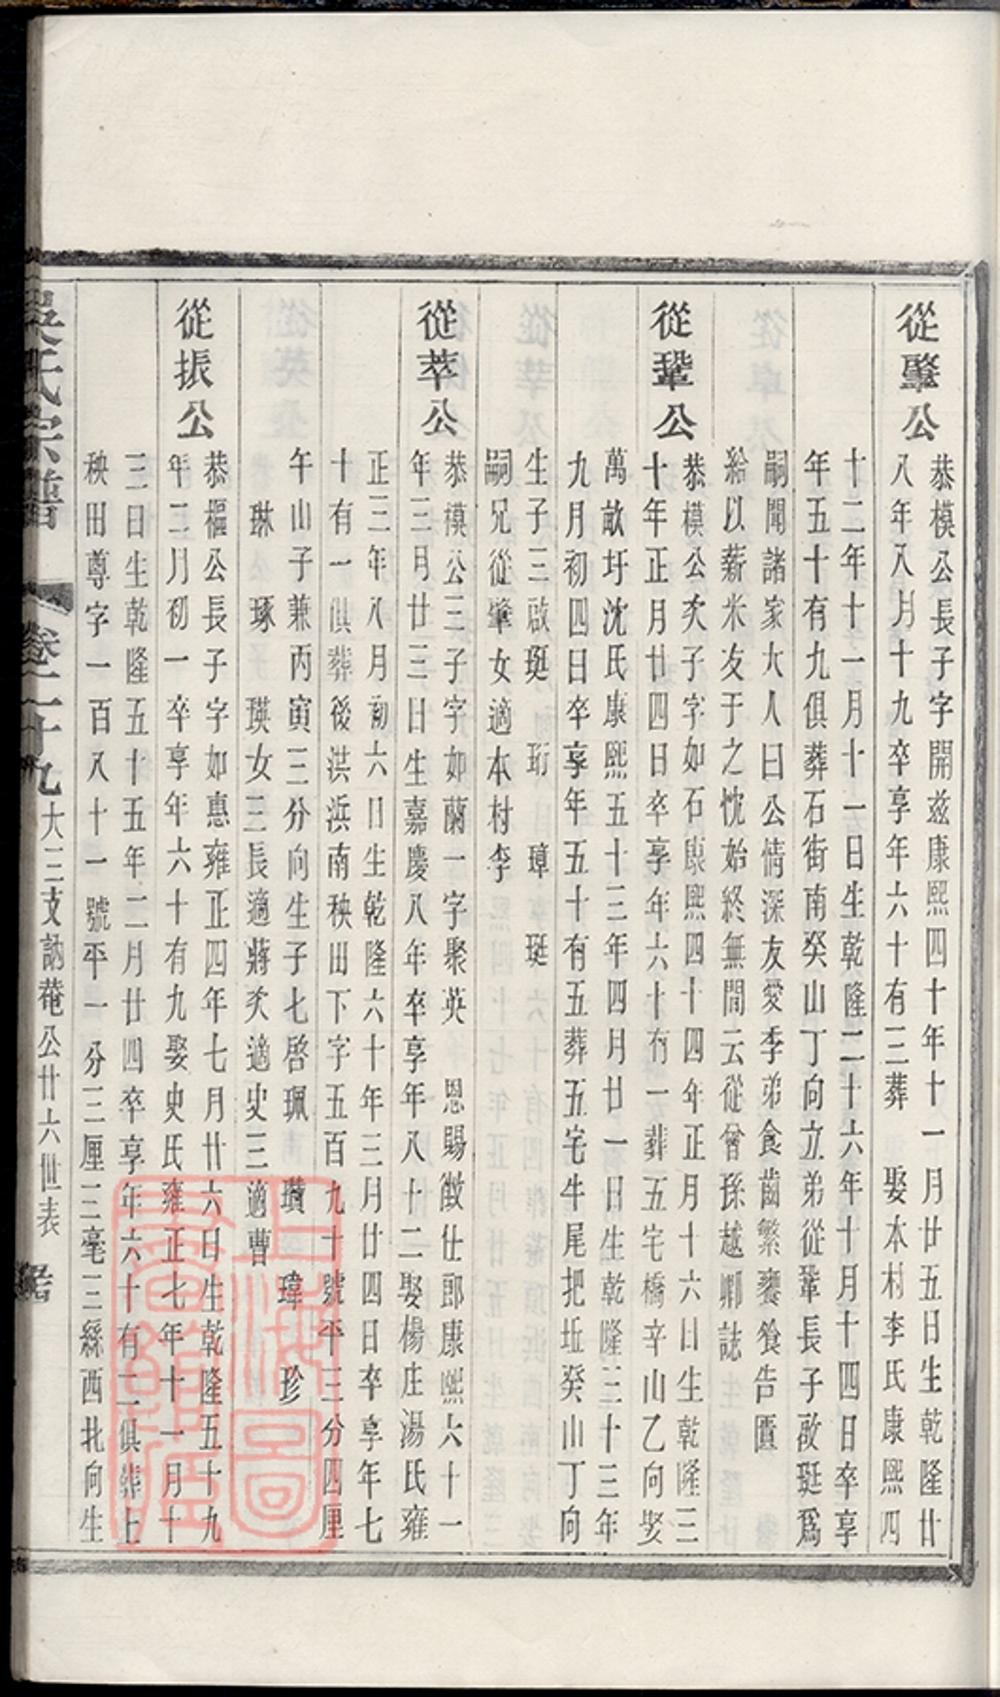 從肇公
恭模公長子字開兹康熙四十年十一月廿五日生乾隆廿
八年八月十九卒享年六十有三葬 娶本村李氏康熙四
十二年十一月十一日生乾隆二十六年十月十四日卒享
年五十有九俱葬石街南癸山丁向立弟從鞏長子啟珽爲
嗣聞諸家大人曰公情深友愛季弟食齒繁饔飧告匱
給以薪米友于之忱始終無間云從曾孫越卿誌
從鞏公
恭模公次子字如石康熙四十四年正月十六日生乾隆三
十年正月廿四日卒享年六十有一葬五宅橋辛山乙向娶
萬畝圩沈氏康熙五十三年四月廿一日生乾隆三十三年
九月初四日卒享年五十有五葬五宅牛尾把坵癸山丁向
生子三啟珽 珩 璋 珽
嗣兄從肇女適本村李
從萃公
恭模公三子字如蘭一字聚英 恩賜徵仕郎康熙六十一
年三月廿三日生嘉慶八年卒享年八十二娶楊庄湯氏雍
正三年八月初六日生乾隆六十年三月廿四日卒享年七
十有一俱葬後洪浜南秧田下字五百九十號平三分四厘
午山子兼丙寅三分向生子七啓珮 瓚 瑋 珍
琳 琢 瑛女三長適蔣次適史三適曹
從振公
恭樞公長子字如惠雍正四年七月廿六日生乾隆五十九
年二月初一卒享年六十有九娶史氏雍正七年十一月十
三日生乾隆五十五年二月廿四卒享年六十有二俱葬上
秧田尊字一百八十一號平一分三厘三毫三絲西北向生
吳氏宗譜
卷二十九
大三支訥菴公廿六世表
上海圖書館藏